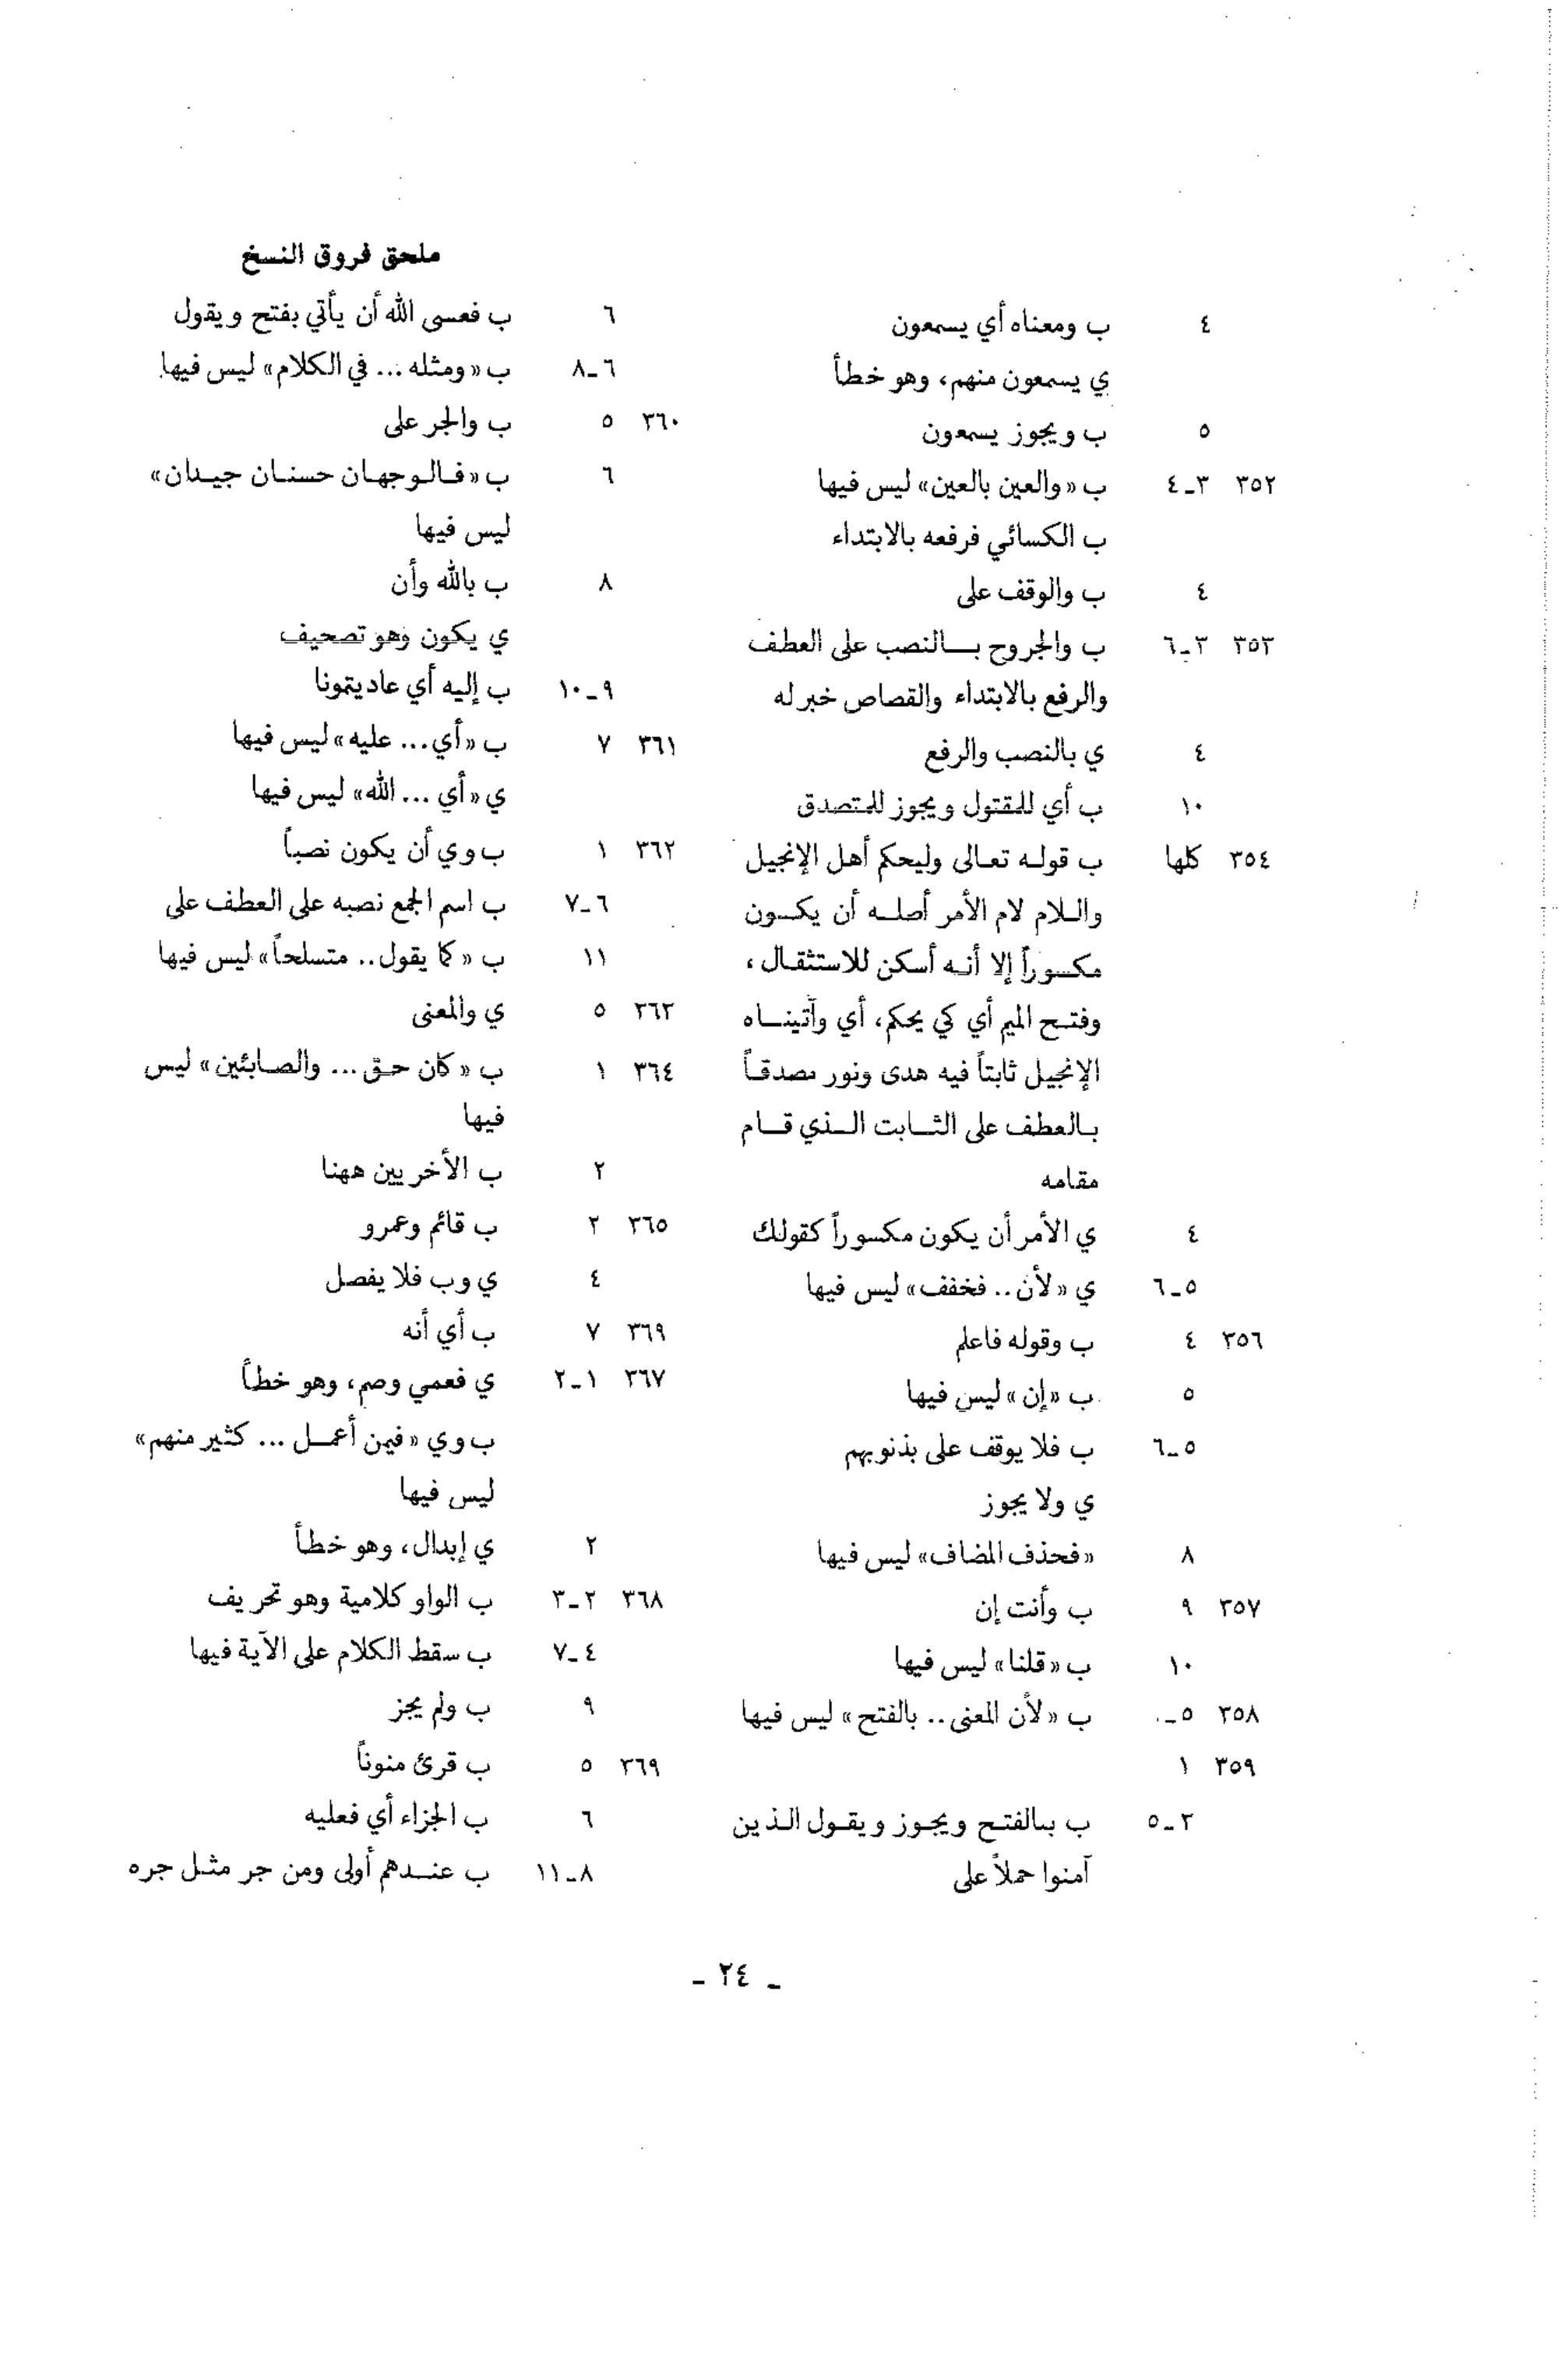 ملحق فروق النسخ
٤ ب ومعناه أي يسمعون
ي يسمعون منهم، وهو خطأ
٥ ب ويجوز يسمعون
٣٥٢ ٣ـ٤ ب «والعين بالعين» ليس فيها
ب الكسائي فرفعه بالابتداء
٤ ب والوقف على
٣٥٣ ٣ـ٦ ب والجروح بالنصب على العطف
والرفع بالابتداء والقصاص خبر له
٤ ي بالنصب والرفع
١٠ ب أي للمقتول ويجوز للمتصدق
٣٥٤ كلها ب قوله تعالى وليحكم أهل الإنجيل
واللام لام الأمر أصله أن يكون
مكسوراً إلا أنه أسكن للاستثقال،
وفتح الميم أي كي يحكم، أي وآتيناه
الإنجيل ثابتاً فيه هدى ونور مصدقاً
بالعطف على الثابت الذي قام
مقامه
٤ ي الأمر أن يكون مكسوراً كقولك
٥ـ٦ ي «لأن.. فخفف» ليس فيها
٣٥٦ ٤ ب وقوله فاعلم
٥ ب «إن» ليس فيها
٥ـ٦ ب فلا يوقف على بذنوبهم
ي ولا يجوز
٨ «فحذف المضاف» ليس فيها
٣٥٧ ٩ ب وأنت إن
١٠ ب «قلنا» ليس فيها
٣٥٨ ٥ـ ب «لأن المعنى.. بالفتح» ليس فيها
٣٥٩ ١
٢ـ٥ ب بالفتح ويجوز ويقول الذين
آمنوا حملاً على
٦ ب فعسى الله أن يأتي بفتح ويقول
٦ـ٨ ب «ومثله ... في الكلام» ليس فيها
٣٦٠ ٥ ب والجر على
٦ ب «فالوجهان حسنان جيدان»
ليس فيها
٨ ب بالله وأن
ي يكون وهو تصحيف
٩ـ١٠ ب إليه أي عاديتمونا
٣٦١ ٧ ب «أي... عليه» ليس فيها
ي «أي ... الله» ليس فيها
٣٦٢ ١ ب وي أن يكون نصباً
٦ـ٧ ب اسم الجمع نصبه على العطف على
١١ ب «كما يقول.. متسلحاً» ليس فيها
٣٦٣ ٥ ي والمعنى
٣٦٤ ١ ب «كان حق ... والصابئين» ليس
فيها
٢ ب الأخريين ههنا
٣٦٥ ٢ ب قائم وعمرو
٤ ي وب فلا يفصل
٣٦٩ ٧ ب أي أنه
٣٦٧ ١ـ٢ ي فعمي وصم، وهو خطأ
ب وي «فيمن أعمل ... كثير منهم»
ليس فيها
٢ ي إبدال، وهو خطأ
٣٦٨ ٢ـ٣ ب الواو كلامية وهو تحريف
٤ـ٧ ب سقط الكلام على الآية فيها
٩ ب ولم يجز
٣٦٩ ٥ ب قرئ منوناً
٦ ب الجزاء أي فعليه
٨ـ١١ ب عندهم أولى ومن جر مثل جره
ـ ٢٤ ـ